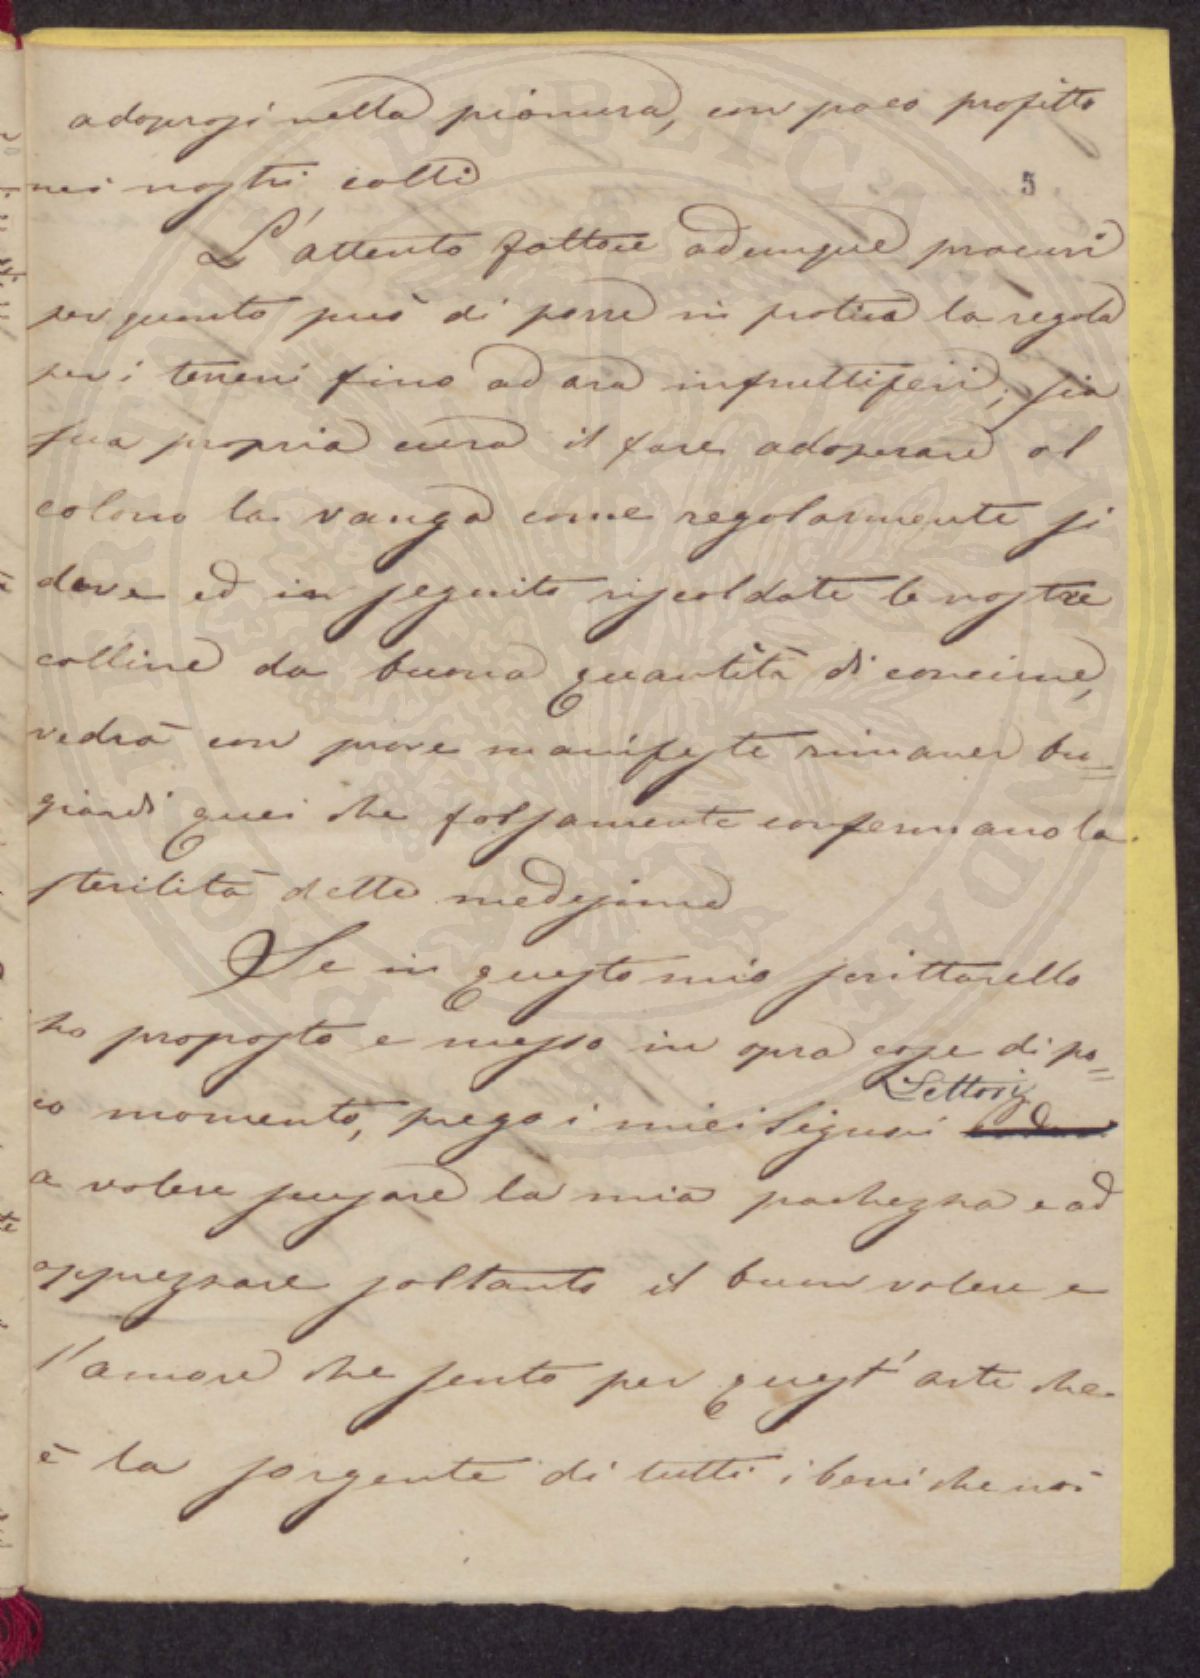 adoprasi nella pianura, con poco profitto
nei nostri colli
5
L'attento fattore adunque procuri
per quanto può di porre in pratica la regola
per i terreni fino ad ora infruttiferi; sia
sua propria cura il fare adoperare al
colono la vanga come regolarmente si
deve ed in seguito riscaldate le nostre
colline da buona quantità di concime,
vedrà con prove manifeste rimaner bu=
giardi quei che falsamente confermano la
sterilità delle medesime
Se in questo mio scrittarello
ho proposto e messo in opra cose di po=
Lettori
co momento, prego i miei Signori
a volere scusare la mia pochezza e ad
apprezzare soltanto il buon volere e
l'amore che sento per quest'arte che
è la sorgente di tutti i beni che noi